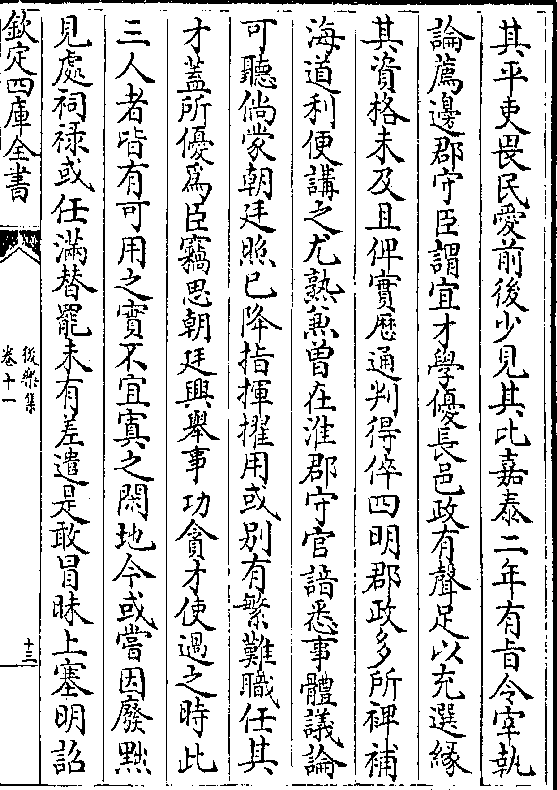 其平吏畏民愛前後少見其比嘉泰二年有旨令宰執
論薦邊郡守臣謂宜才學優長邑政有聲足以充選緣
其資格未及且俾實歷通判得倅四明郡政多所裨補
海道利便講之尤熟兼曾在淮郡守官諳悉事體議論
可聽倘蒙朝廷照已降指揮擢用或别有繁難職任其
才蓋所優為臣竊思朝廷興舉事功貪才使過之時此
三人者皆有可用之實不宜寘之閑地今或嘗因廢黜
見處祠禄或任滿替罷未有差遣是敢冒昧上塞明詔
欽定四庫全書
後樂集
卷十一
十三